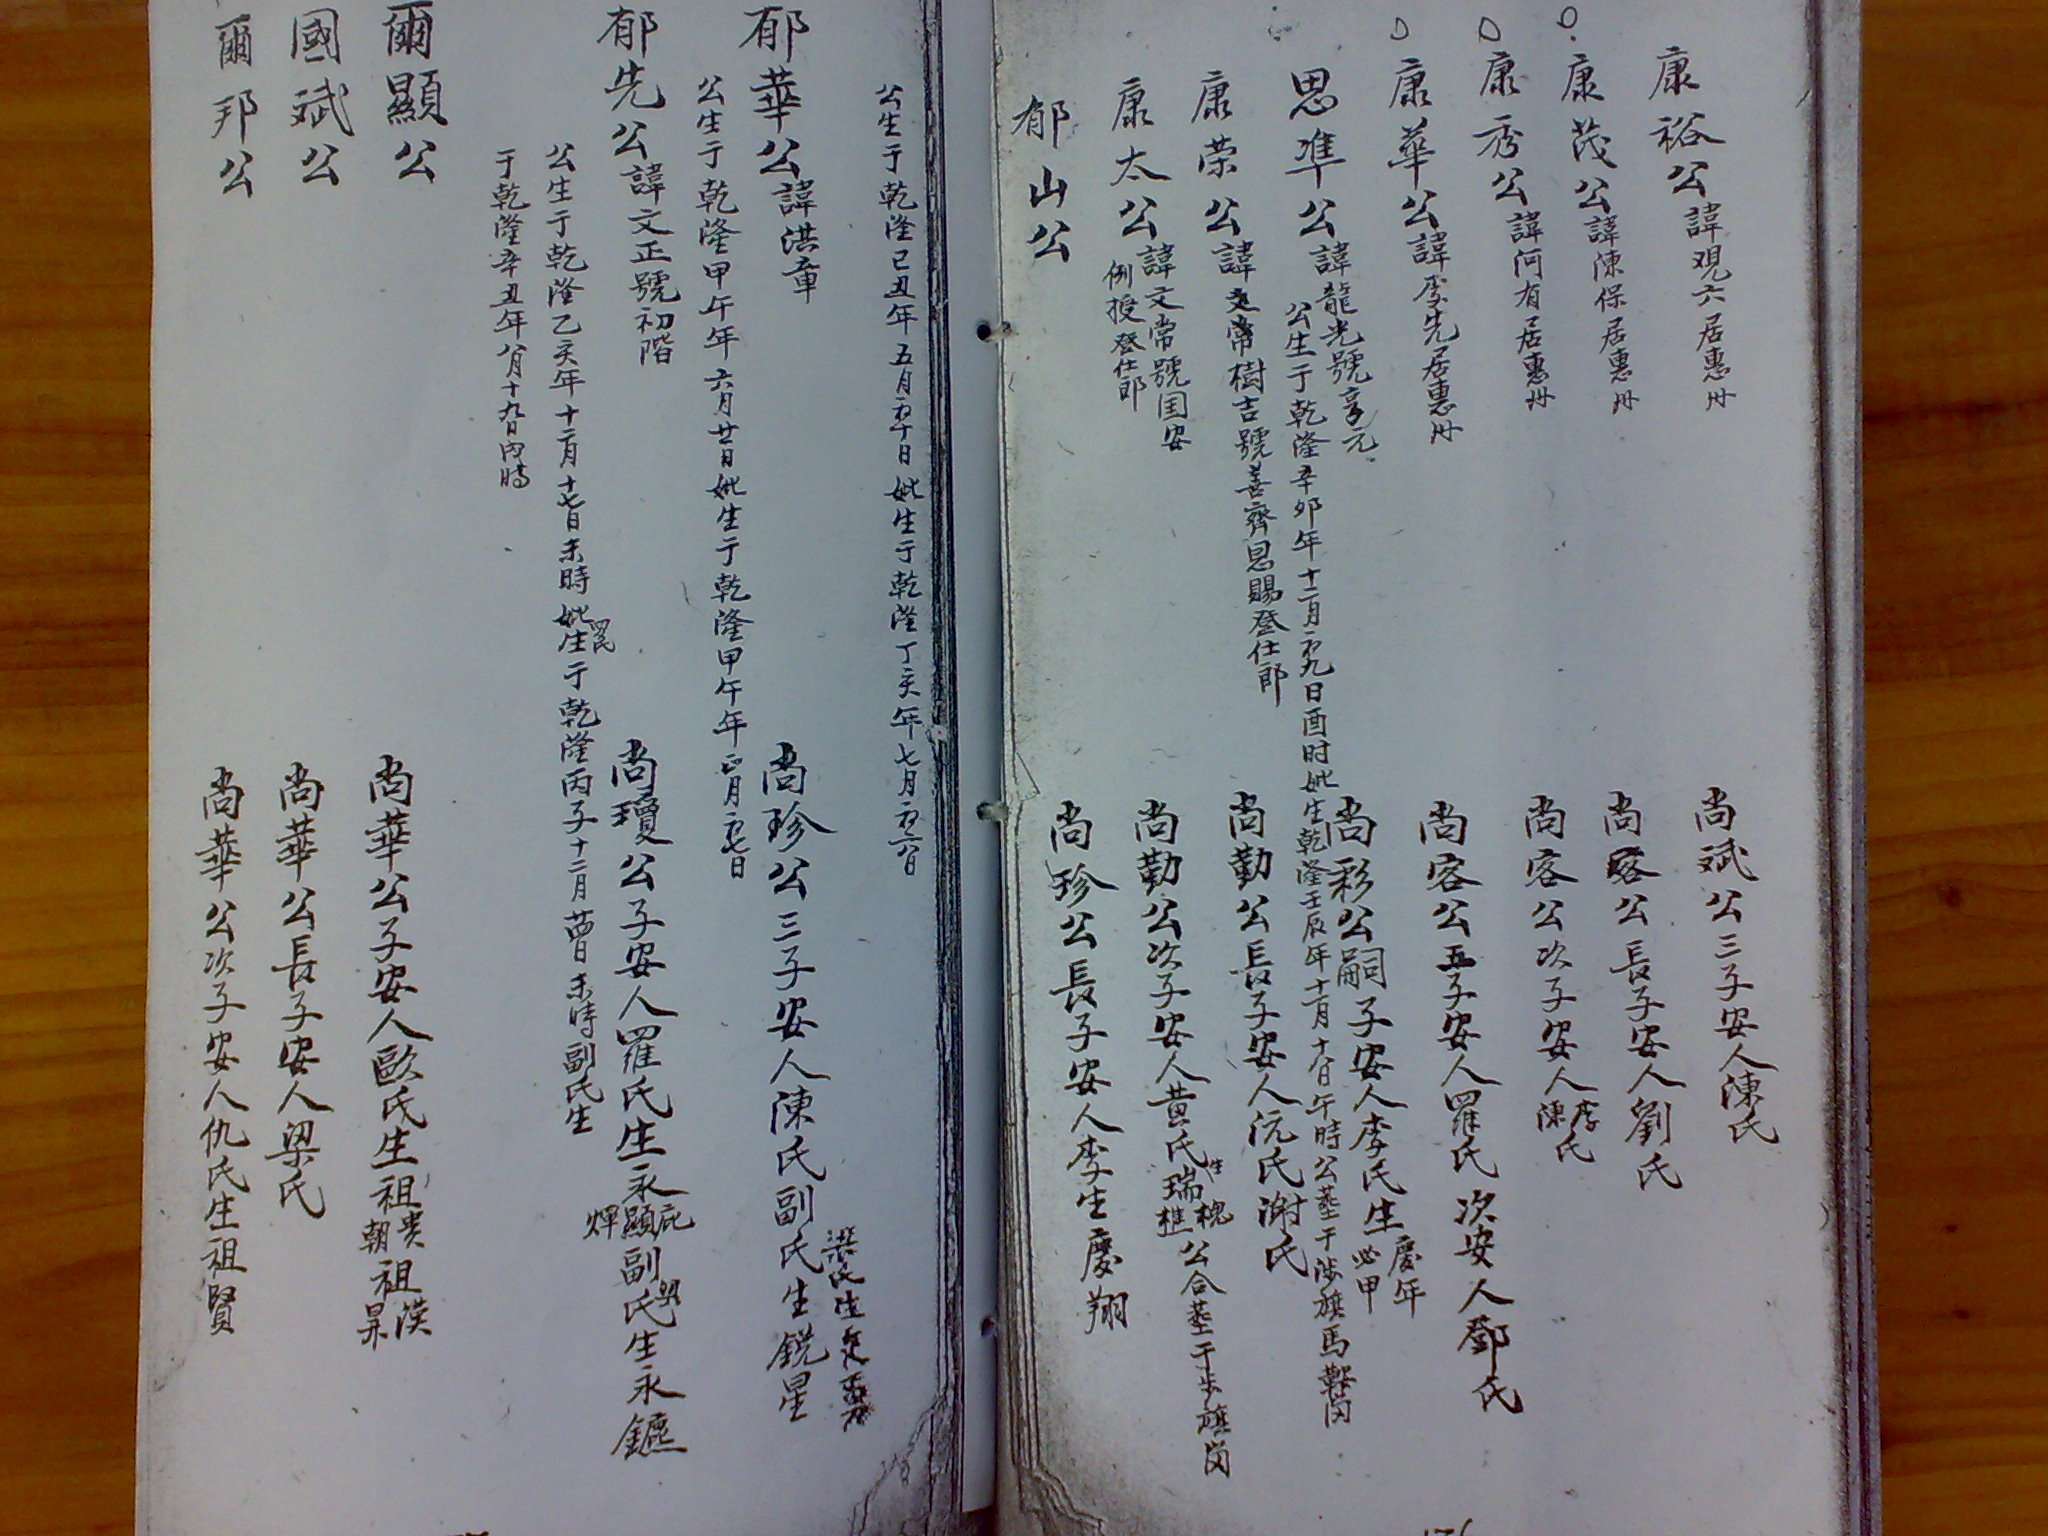 康裕公諱观六居惠州
尚斌公三子安人陳氏
康茂公諱陳保居惠州
尚容公長子安人劉氏
康秀公諱何有居惠州
尚容公次子安人陳李氏
康華公諱李先居惠州
尚容公五子安人羅氏次安人鄧氏
思準公諱龍光號享元
公生于乾隆辛卯年十二月初九日酉时妣生乾隆壬辰年十一月十八日午時公墓于涉旗馬鞍
尚彩公嗣子安人李氏生慶年必甲
康荣公諱文常樹吉號善齊恩賜登仕郎
尚勤公長子安人沅氏謝氏
康太公諱文常號国安
例授登仕郎
尚勤公次子安人黄氏生瑞槐樵公合墓于旗岗
郁山公
尚珍公長子安人李生慶翔
公生于乾隆己丑年五月初十日妣生于乾隆丁亥年七月初六日
郁華公諱洪章
尚珍公三子安人陳氏副氏生銳星
梁氏生
公生于乾隆甲午年六月廿日妣生于乾隆甲午年正月初七日
郁先公諱文正號初階
尚瓊公子安人羅氏生永庇顯燀副氏生永鑣
公生于乾隆乙亥年十二月十七日未時妣羅氏生于乾隆丙子十二月廿四日未時副氏生
于乾隆辛丑年八月十九日丙時
爾顯公
尚華公子安人歐氏生祖贵朝祖漢昇
國斌公
尚華公長子安人梁氏
爾邦公
尚華公次子安人仇氏生祖賢